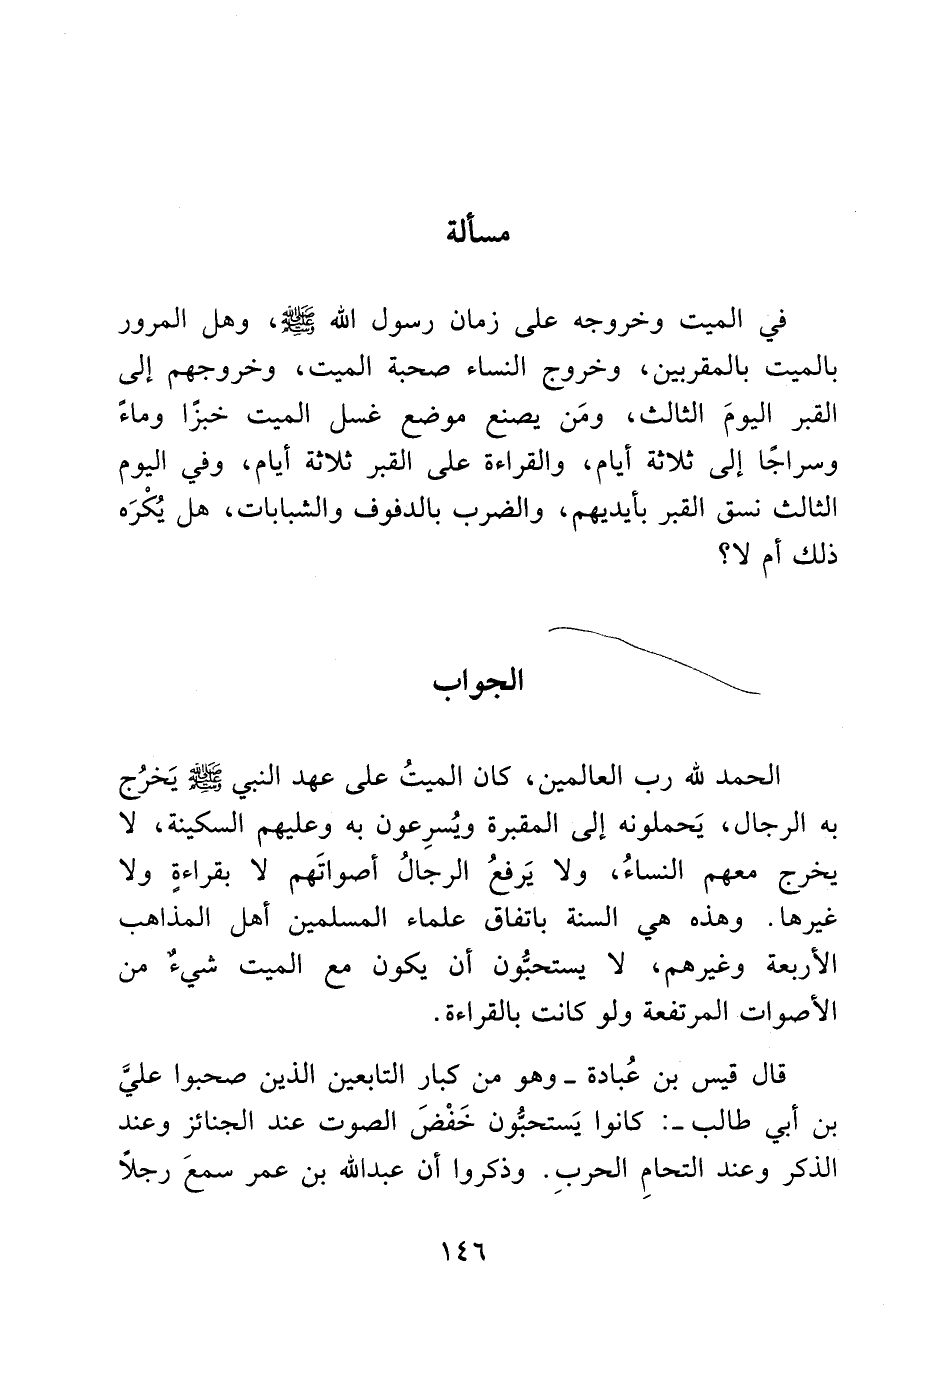 مسألة
في الميت وخروجه على زمان رسول الله ﷺ، وهل المرور
بالميت بالمقربين، وخروج النساء صحبة الميت، وخروجهم إلى
القبر اليومَ الثالث، ومَن يصنع موضع غسل الميت خبزًا وماءً
وسراجًا إلى ثلاثة أيام، والقراءة على القبر ثلاثة أيام، وفي اليوم
الثالث نسق القبر بأيديهم، والضرب بالدفوف والشبابات، هل يُكْرَه
ذلك أم لا؟
الجواب
الحمد لله رب العالمين، كان الميتُ على عهد النبي ﷺ يَخرُج
به الرجال، يَحملونه إلى المقبرة ويُسرِعون به وعليهم السكينة، لا
يخرج معهم النساءُ، ولا يَرفعُ الرجالُ أصواتَهم لا بقراءةٍ ولا
غيرها. وهذه هي السنة باتفاق علماء المسلمين أهل المذاهب
الأربعة وغيرهم، لا يستحبُّون أن يكون مع الميت شيءٌ من
الأصوات المرتفعة ولو كانت بالقراءة.
قال قيس بن عُبادة ـ وهو من كبار التابعين الذين صحبوا عليَّ
بن أبي طالب ـ: كانوا يَستحبُّون خَفْضَ الصوت عند الجنائز وعند
الذكر وعند التحامِ الحربِ. وذكروا أن عبدالله بن عمر سمعَ رجلاً
١٤٦